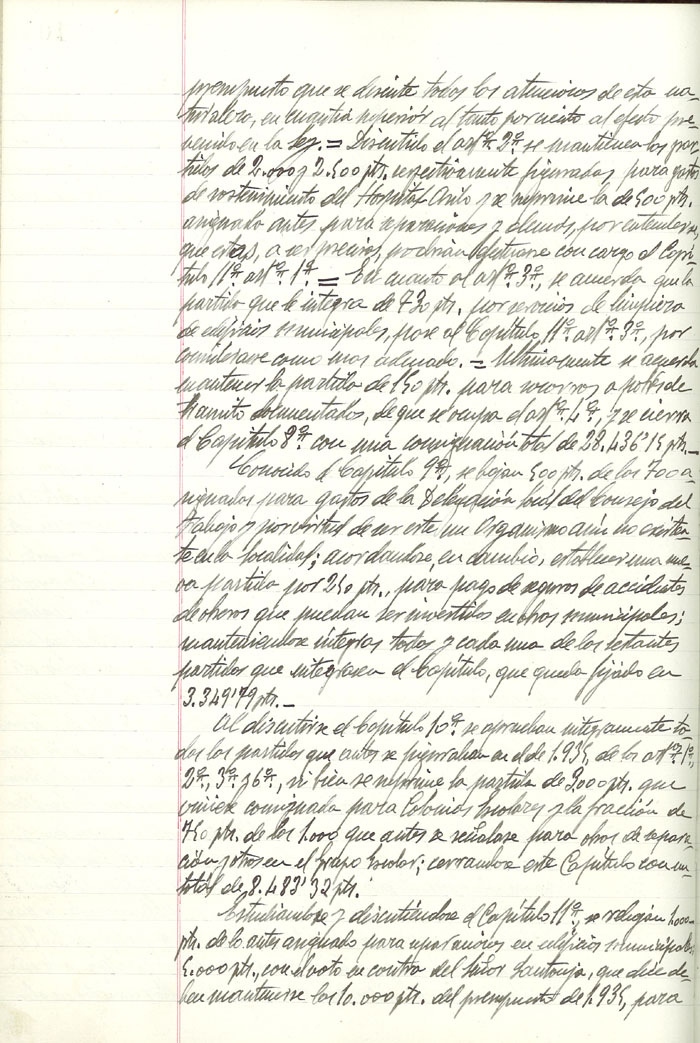 presupuesto que se discute todas las atenciones de esta na-
turaleza, en cuantía superior al tanto por ciento al efecto pre-
venido en la ley. = Discutido el artº. 2º. se mantienen las par-
tidas de 2.000 y 2.500 pts. respectivamente figuradas para gastos
de sostenimiento del Hospital Asilo y se suprime la de 500 pts.
asignada antes para reparaciones y demás, por entenderse,
que estas, a ser precisas, podrían efectuarse con cargo al Capí-
tulo 11º artº. 1º. = En cuanto al artº. 3º., se acuerda que la
partida que le integra de 730 pts. por servicios de limpieza
de edificios municipales, pase al Capítulo 11º. artº. 3º., por
considerarse como mas adecuado. = Ultimamente se acuerda
mantener la partida de 150 pts. para socorros a pobres de
tránsito documentados, de que se ocupa el artº. 4º., y se cierra
el Capítulo 8º. con una consignación total de 28.436'15 pts. —
Conocido el Capítulo 9º., se bajan 500 pts. de las 700 a-
signadas para gastos de la Delegación local del Consejo del
Trabajo y por virtud de ser este, un Organismo aún no existen-
te en la localidad; acordandose, en cambio, establecer una nue-
va partida por 250 pts., para pago de seguros de accidentes
de obreros que puedan ser invertidos en obras municipales;
manteniendose íntegras todas y cada una de las restantes
partidas que integrasen el Capítulo, que queda fijado en
3.349'79 pts. —
Al discutirse el Capítulo 10º. se aprueban integramente to-
das las partidas que antes se figuraban en el de 1.935, de los artºs. 1º.,
2º., 3º. y 6º., si bien se suprime la partida de 3.000 pts. que
viniese consignada para Colonias Escolares y la fracción de
750 pts. de las 1.000 que antes se señalase para obras de repara-
ción y otros en el Grupo Escolar; cerrandose este Capítulo con un
total de 8.483'32 pts.
Estudiandose y discutiendose el Capítulo 11º., se rebajan 1.000
pts. de lo antes asignado para reparaciones en edificios municipales,
5.000 pts., con el voto en contra del Señor Santonja, que dice de-
ben mantenerse las 10.000 pts. del presupuesto de 1.935, para